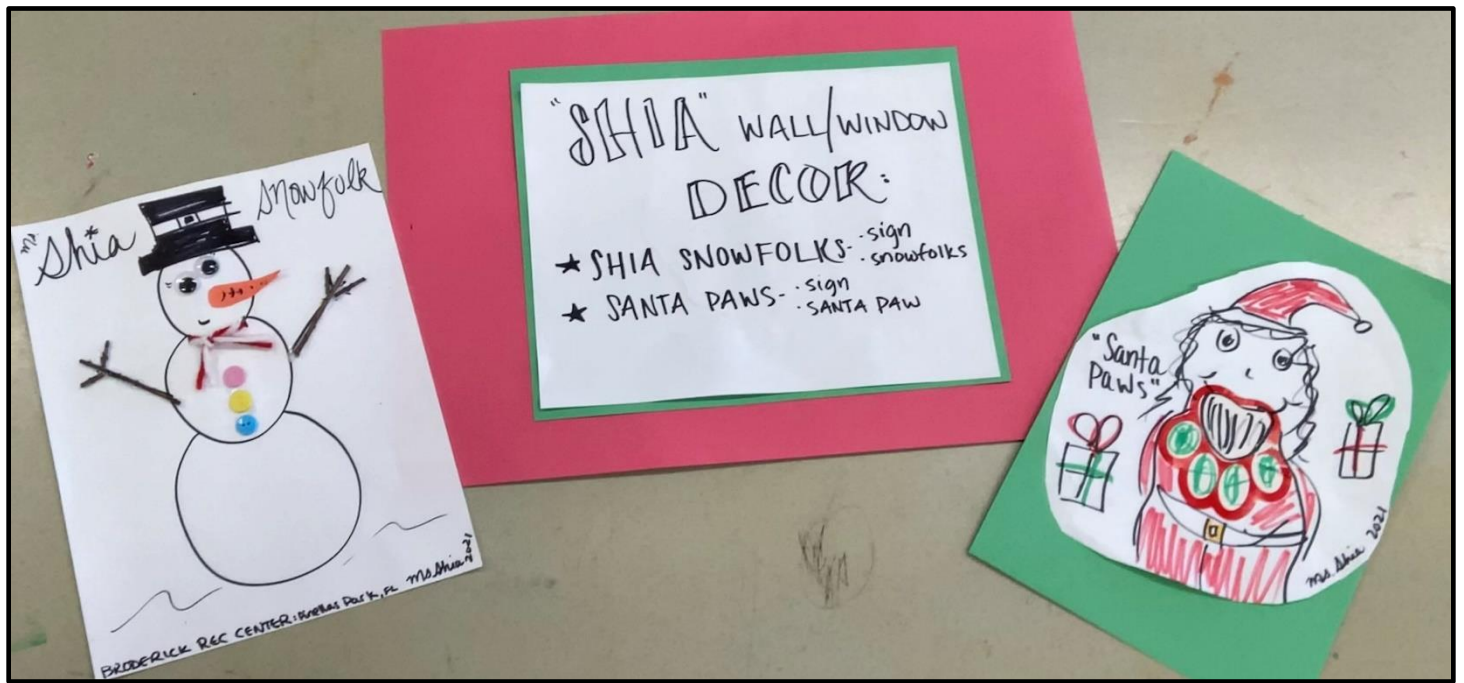 "Ms Shia Snowfolk
BRODERICK REC CENTER: Pinellas Park, FL
Ms. Shia 2021
"SHIA" WALL/WINDOW
DECOR:
★ SHIA SNOWFOLKS- · sign
· snowfolks
★ SANTA PAWS- · sign
· SANTA PAW
"Santa
Paws"
Ms. Shia 2021